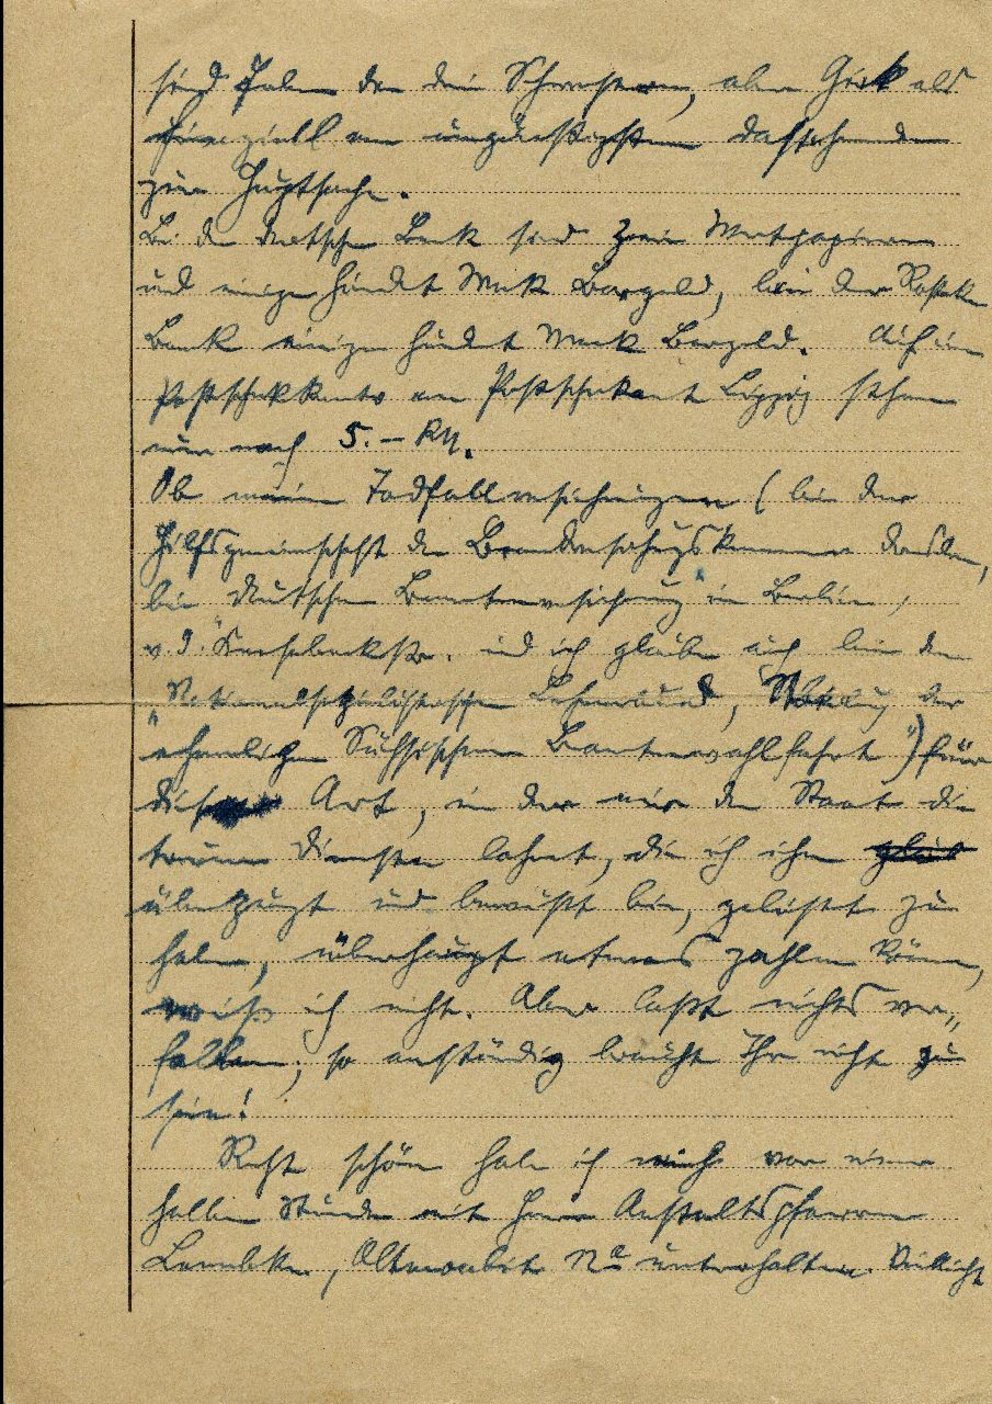 sind Erben die drei Schwestern, aber Grete als
finanziell am ungünstigsten dastehende
zur Hauptsache.
Bei der Deutschen Bank sind zwei Wertpapiere
und einige hundert Mark Bargeld, bei der
Bank einige hundert Mark Bargeld. Auf
Postscheckkonto am Postscheckamt Leipzig stehen
nur noch 5.– RM.
Ob meine Todfallversicherungen (bei der
Hilfsgemeinschaft der Brandversicherungskammer Dresden,
bei Deutschen Beamtenversicherung in Berlin,
v. d. und ich glaube auch bei dem
Nationalsozialistischen Lehrerbund, Abteilung der
"ehemaligen Sächsischen Beamtenwohlfahrt") für
diese Art, in der mir der Staat die
treuen Dienste lohnt, die ich ihm
überzeugt und bewußt bin, geleistet zu
haben, überhaupt etwas zahlen können,
weiß ich nicht. Aber laßt nichts ver„
fallen; so anständig braucht Ihr nicht zu
sein!
Recht schön habe ich mich vor einer
halben Stunde mit Herrn Anstaltspfarrer
unterhalten. Vielleicht